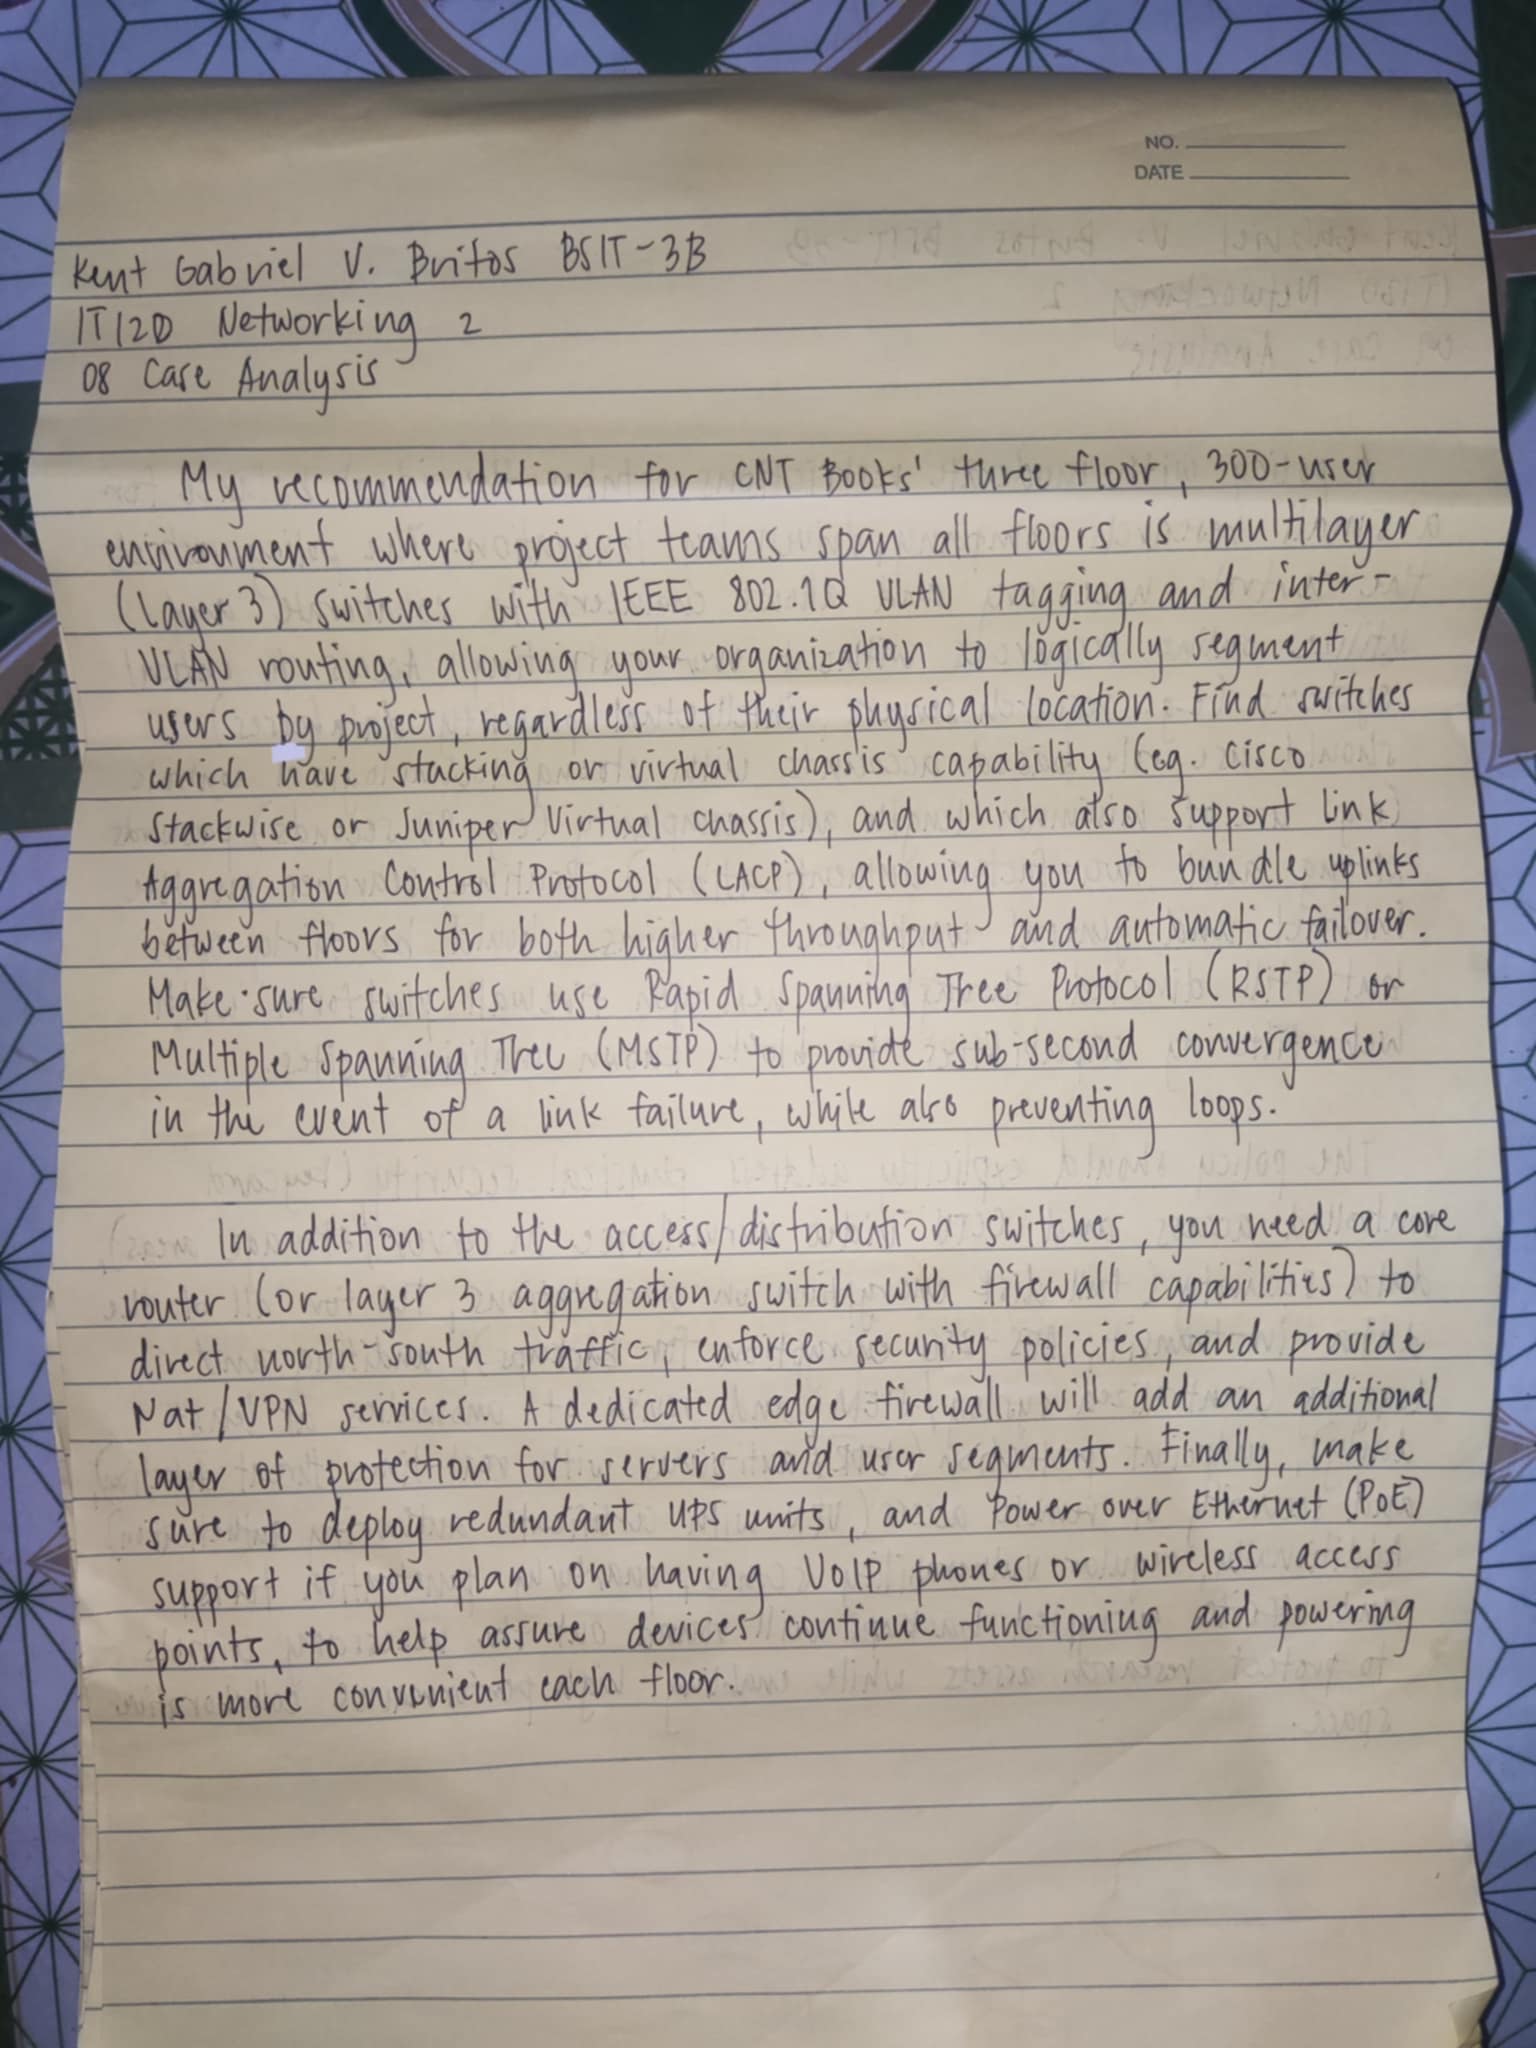 NO.
DATE
Kent Gabriel V. Britos BSIT-3B
IT12D Networking 2
08 Case Analysis
My recommendation for CNT Books' three floor, 300-user
environment where project teams span all floors is multilayer
(Layer 3) switches with IEEE 802.1Q VLAN tagging and inter-
VLAN routing, allowing your organization to logically segment
users by project, regardless of their physical location. Find switches
which have stacking or virtual chassis capability (eg. Cisco
Stackwise or Juniper Virtual chassis), and which also support Link
Aggregation Control Protocol (LACP), allowing you to bundle uplinks
between floors for both higher throughput and automatic failover.
Make sure switches use Rapid Spanning Tree Protocol (RSTP) or
Multiple Spanning Tree (MSTP) to provide sub-second convergence
in the event of a link failure, while also preventing loops.
In addition to the access/distribution switches, you need a core
router (or layer 3 aggregation switch with firewall capabilities) to
direct north-south traffic, enforce security policies, and provide
Nat/VPN services. A dedicated edge firewall will add an additional
layer of protection for servers and user segments. Finally, make
sure to deploy redundant UPS units, and Power over Ethernet (PoE)
support if you plan on having VoIP phones or wireless access
points, to help assure devices continue functioning and powering
is more convenient each floor.